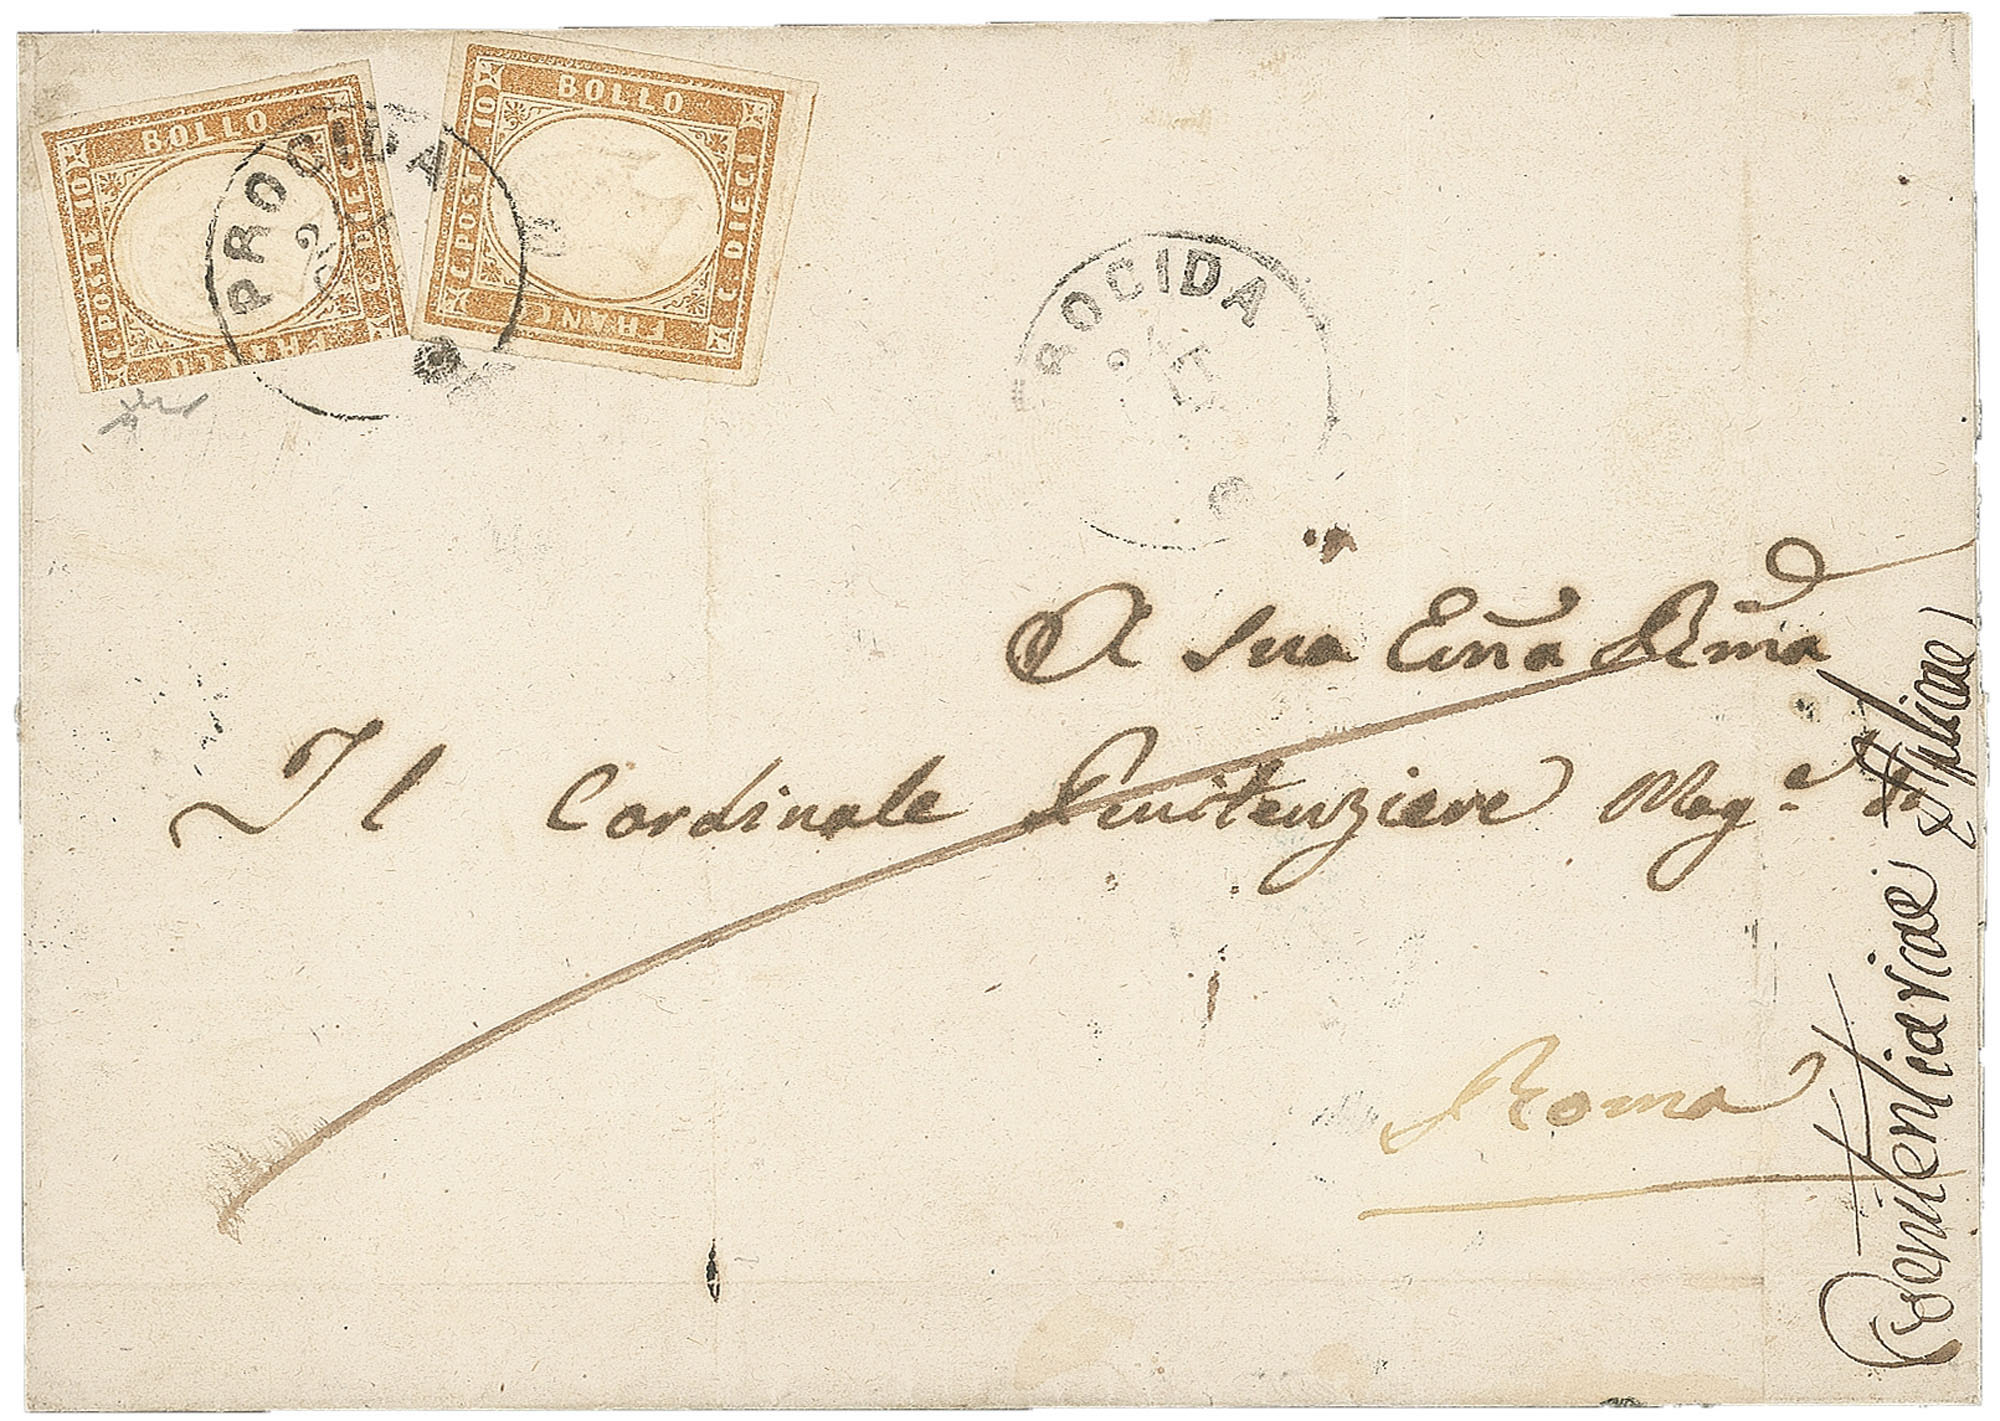 BOLLO
C. POSTE 10
C. DIECI
FRANCO
BOLLO
C. POSTE 10
C. DIECI
FRANCO
PROCIDA
ROCIDA
A Sua Emã Rm̃a
Il Cordinale Penitenziere Mag.e di
Roma
Poenitentiariae